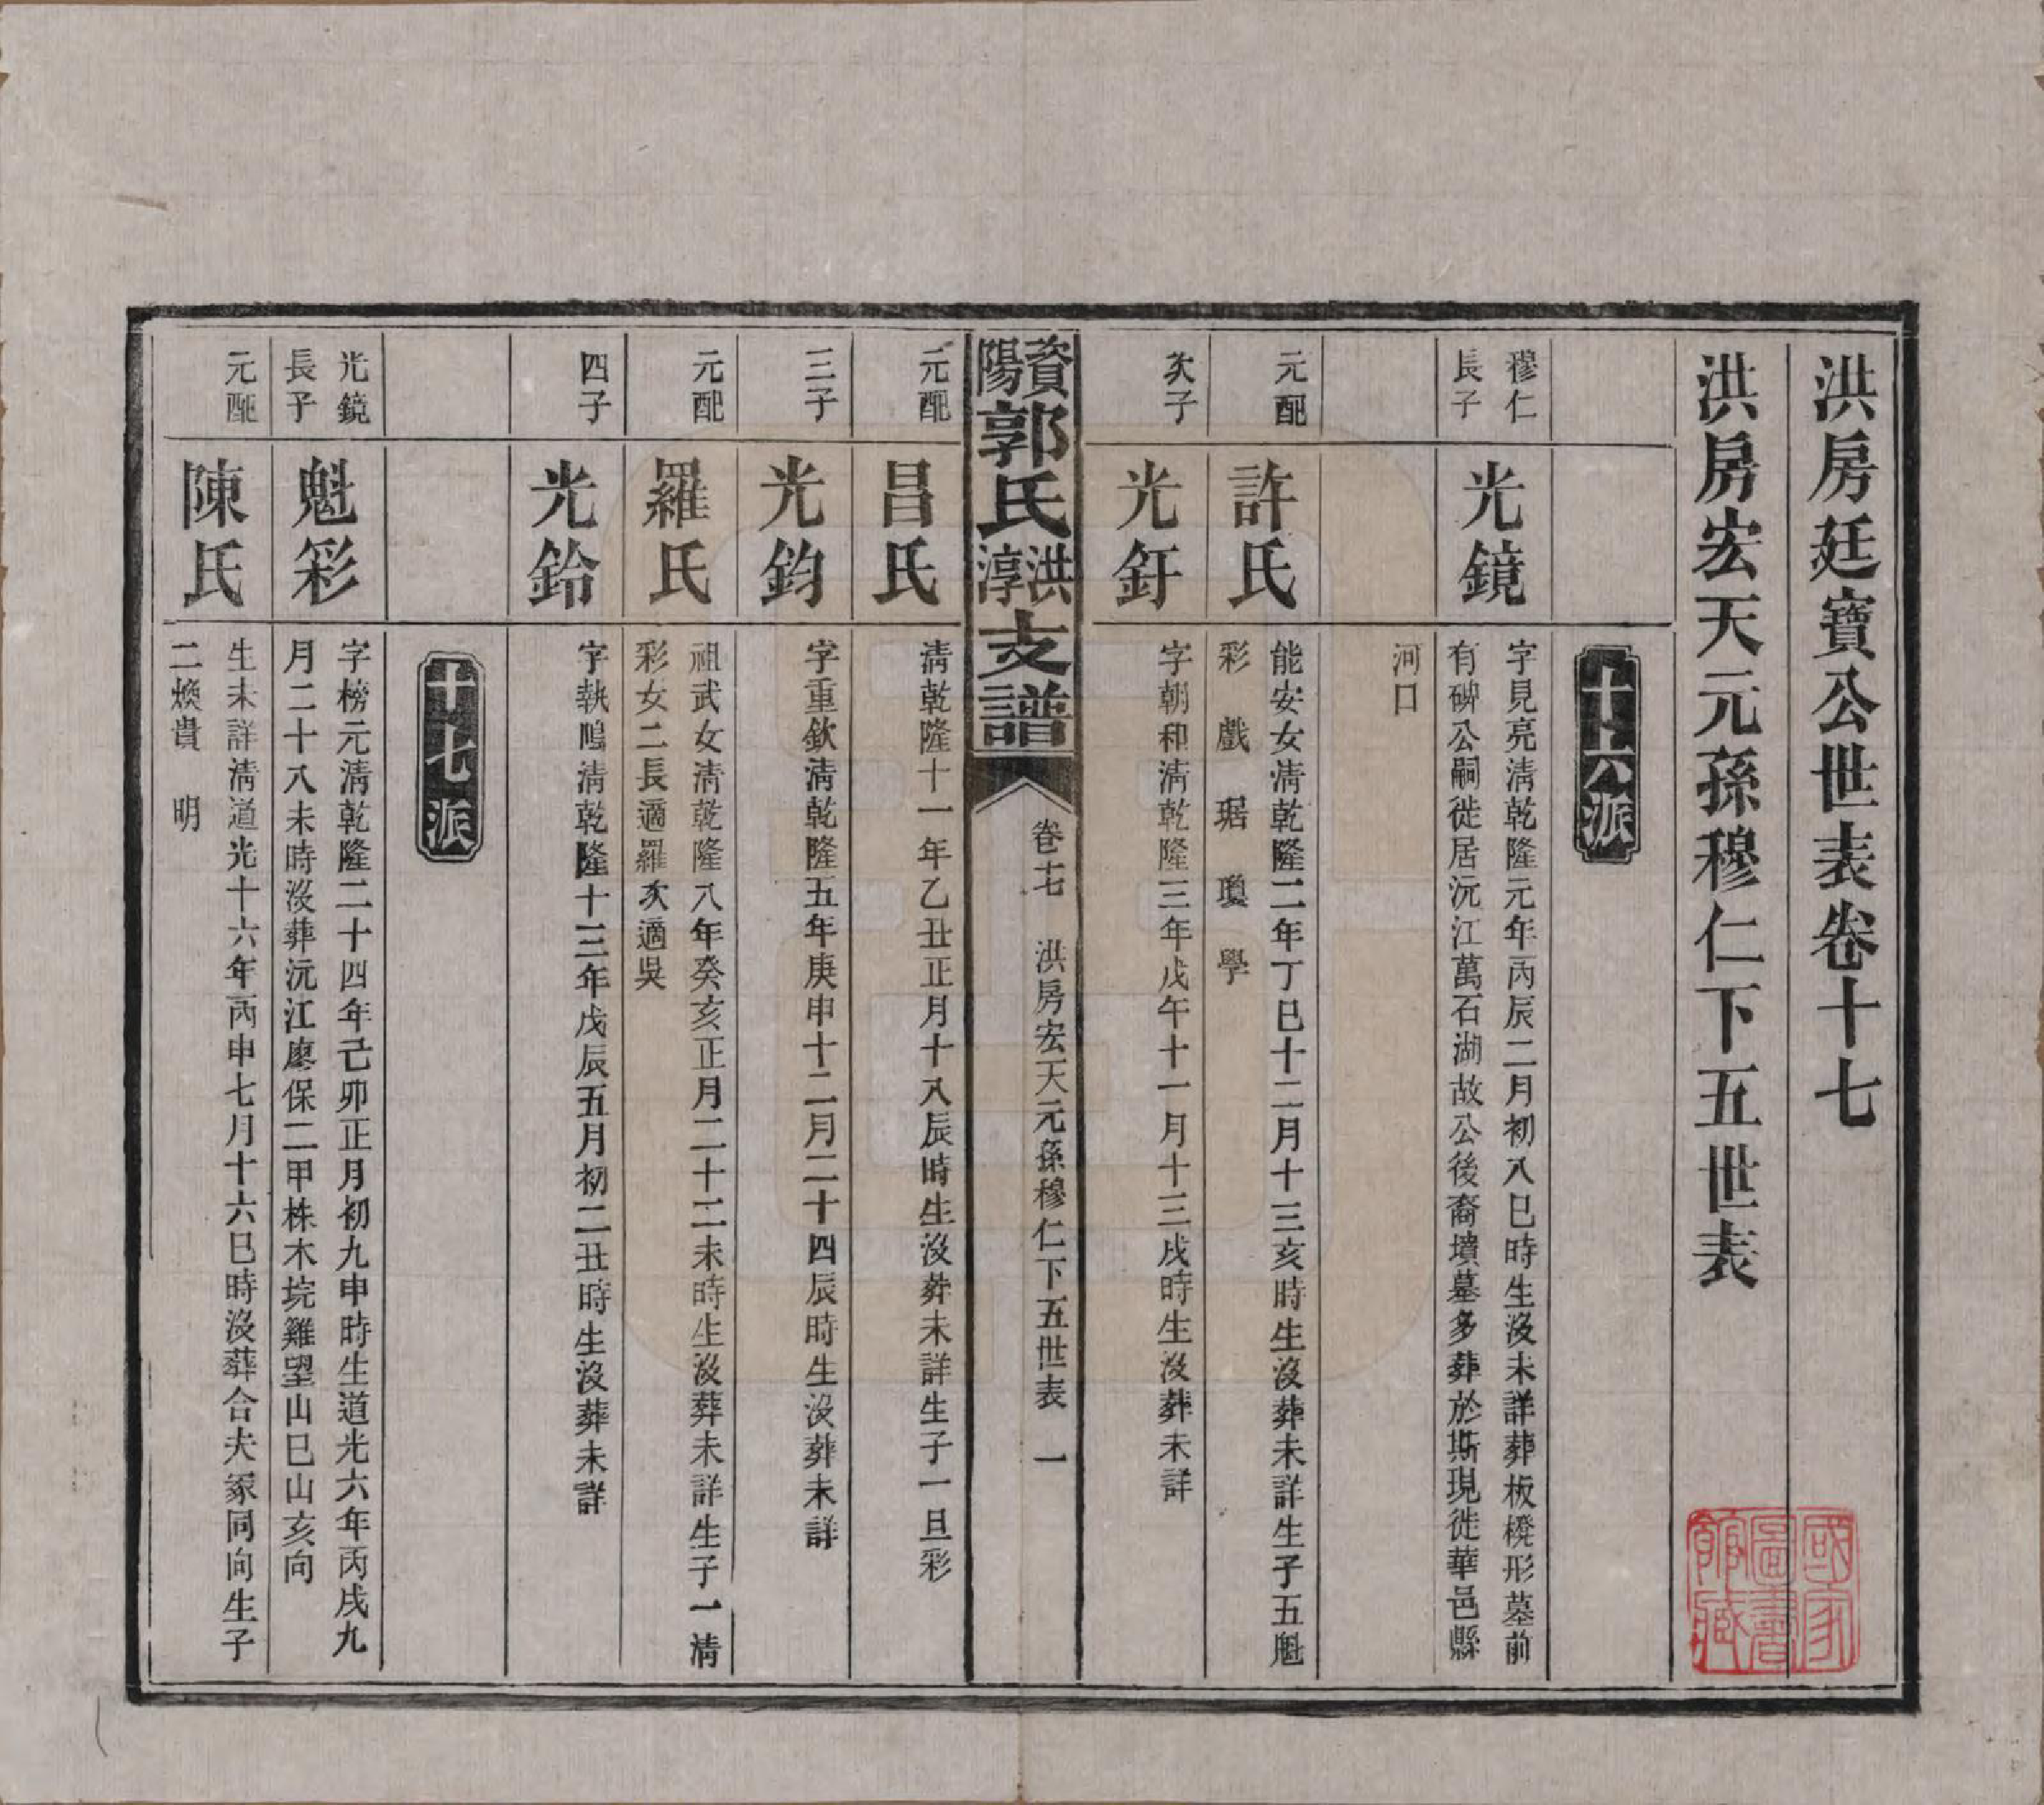 洪房廷寶公世表卷十七
洪房宏天元孫穆仁下五世表
十六派
穆仁
長子
光鏡
字見亮清乾隆元年丙辰二月初八巳時生沒未詳葬板櫈形墓前
有碑公嗣徙居沅江萬石湖故公後裔墳墓多葬於斯現徙華邑縣
河口
元配
許氏
能安女清乾隆二年丁巳十二月十三亥時生沒葬未詳生子五魁
彩 戲 琚 瓊 學
次子
光釪
字朝和清乾隆三年戊午十一月十三戌時生沒葬未詳
資陽郭氏洪淳支譜
卷十七 洪房宏天元孫穆仁下五世表 一
元配
昌氏
清乾隆十一年乙丑正月十八辰時生沒葬未詳生子一旦彩
三子
光鈞
字重欽清乾隆五年庚申十二月二十四辰時生沒葬未詳
元配
羅氏
祖武女清乾隆八年癸亥正月二十二未時生沒葬未詳生子一清
彩女二長適羅次適吳
四子
光鈴
字執鳴清乾隆十三年戊辰五月初二丑時生沒葬未詳
十七派
光鏡
長子
魁彩
字榜元清乾隆二十四年己卯正月初九申時生道光六年丙戌九
月二十八未時沒葬沅江廖保二甲株木垸雞望山巳山亥向
元配
陳氏
生未詳清道光十六年丙申七月十六巳時沒葬合夫冢同向生子
二煥貴 明
國家圖書館藏